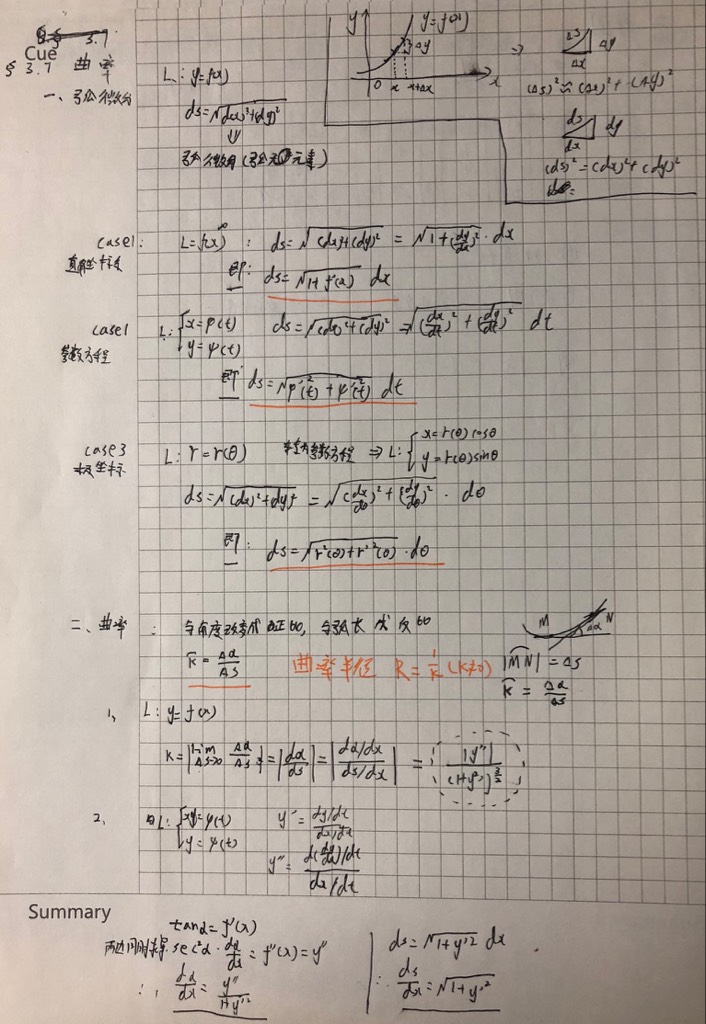 Cue
§ 3.7 曲率
一、弧微分
L: y=f(x)
ds=√(dx)²+(dy)²
⇓
弧微分(弧元素)
y
y=f(x)
Δy
0 x x+Δx x
⇒
Δs Δy
Δx
(Δs)²≈(Δx)²+(Δy)²
ds dy
dx
(ds)²=(dx)²+(dy)²
case1: L=f(x) : ds=√(dx)²+(dy)² = √1+(dy/dx)² · dx
直角坐标系
即: ds=√1+f'(x) dx
case1 L: {x=φ(t) ds=√(dx)²+(dy)² = √(dx/dt)²+(dy/dt)² dt
参数方程 y=ψ(t)
即 ds=√φ'²(t)+ψ'²(t) dt
case3 L: r=r(θ) 参数方程 ⇒ L: {x=r(θ)cosθ
极坐标 y=r(θ)sinθ
ds=√(dx)²+(dy)² = √(dx/dθ)²+(dy/dθ)² · dθ
即: ds=√r²(θ)+r'²(θ) · dθ
二、曲率 : 与角度改变成正比, 与弧长成反比
M N
Δα
K̄ = Δα/Δs 曲率半径 R=1/K (K≠0) |MN|=Δs
K̄ = Δα/Δs
1, L: y=f(x)
K=|lim Δs→0 Δα/Δs|=|dα/ds|=|(dα/dx)/(ds/dx)| = |y''|/(1+y'²)^(3/2)
2, L: {x=φ(t) y'=(dy/dt)/(dx/dt)
y=ψ(t)
y''=(d(dy/dx)/dt)/(dx/dt)
Summary
tanα=f'(x)
两边同时求导 sec²α·dα/dx=f''(x)=y''
∴ dα/dx=y''/(1+y'²)
ds=√1+y'² dx
∴ ds/dx=√1+y'²